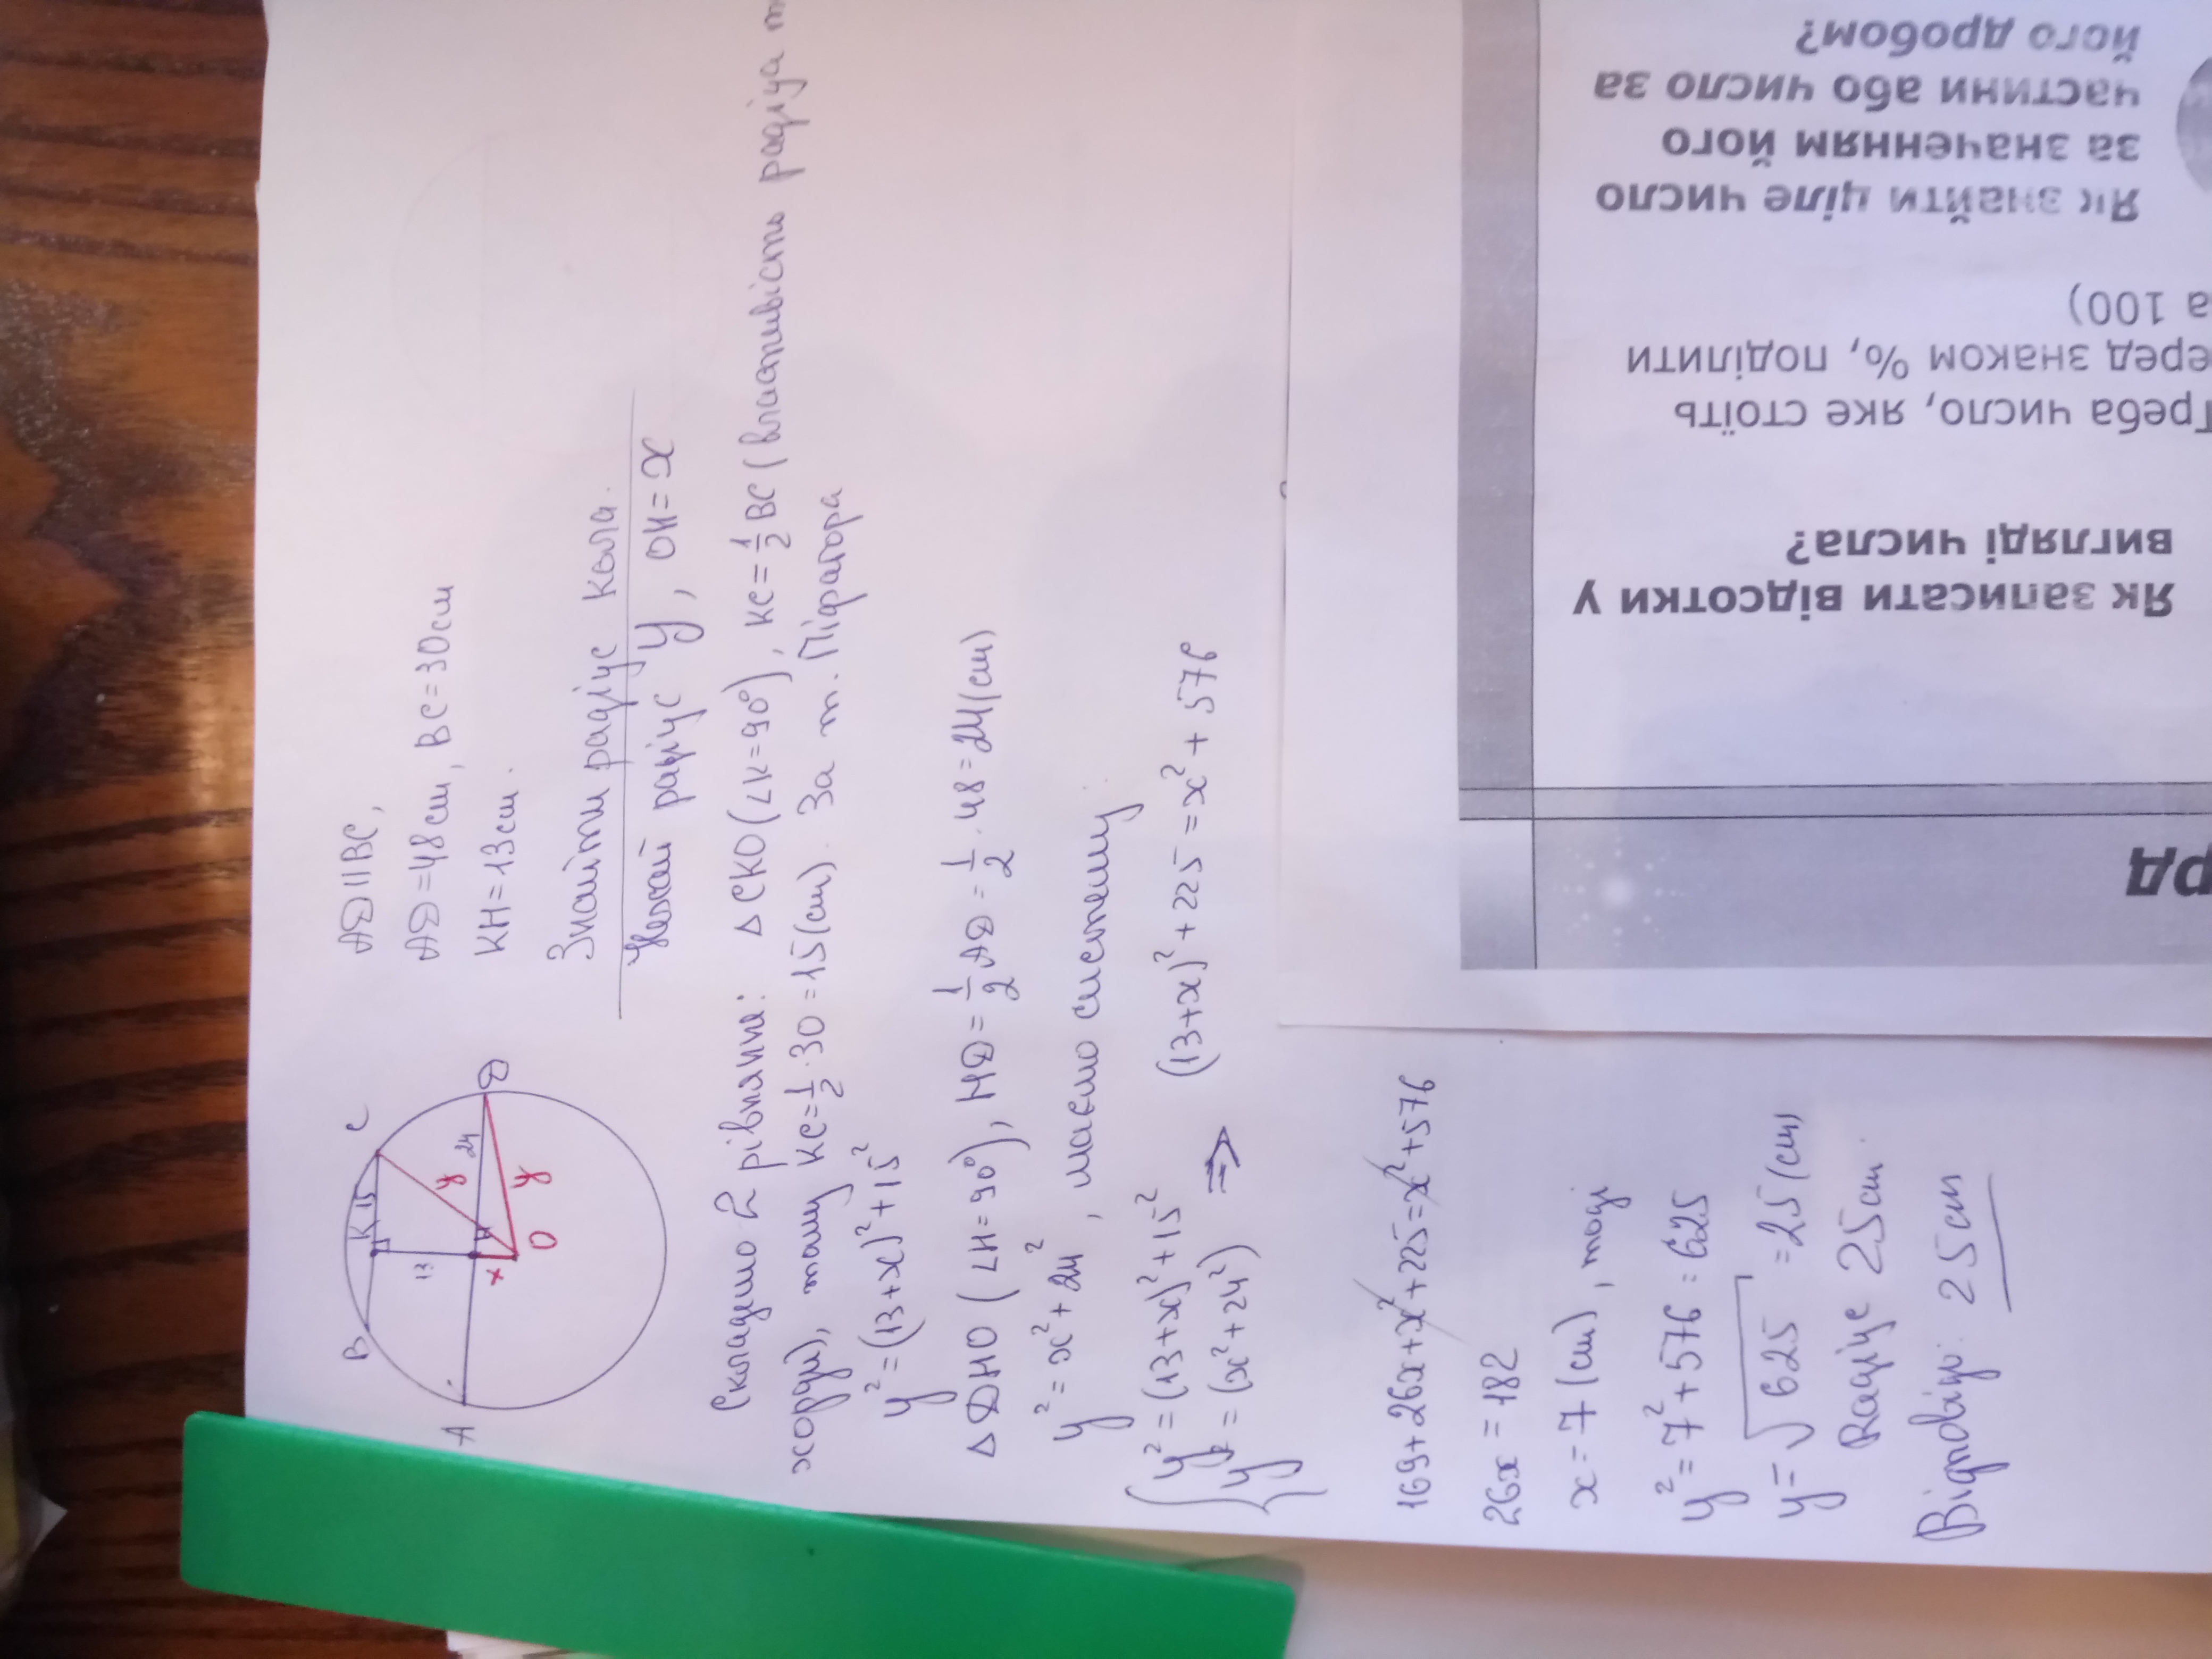 AD||BC,
AD=48см, BC=30см
KH=13см.
Знайти радіус кола.
B
K
15
C
13
y
A
H
24
D
x
y
O
Нехай радіус y, OH=x
Складемо 2 рівняння: △CKO(∠K=90°), KC=1/2BC (властивість радіуса
хорди), тому KC=1/2·30=15(см). За т. Піфагора
y²=(13+x)²+15²
△DHO (∠H=90°), HD=1/2AD=1/2·48=24(см)
y²=x²+24², маємо систему
{y²=(13+x)²+15²
y²=(x²+24²) ⇒ (13+x)²+225=x²+576
169+26x+x²+225=x²+576
26x=182
x=7(см), тоді
y²=7²+576=625
y=√625=25(см)
Радіус 25см.
Відповідь: 25см
рд
Як записати відсотки у
вигляді числа?
Треба число, яке стоїть
перед знаком %, поділити
а 100)
Як знайти ціле число
за значенням його
частини або число за
його дробом?